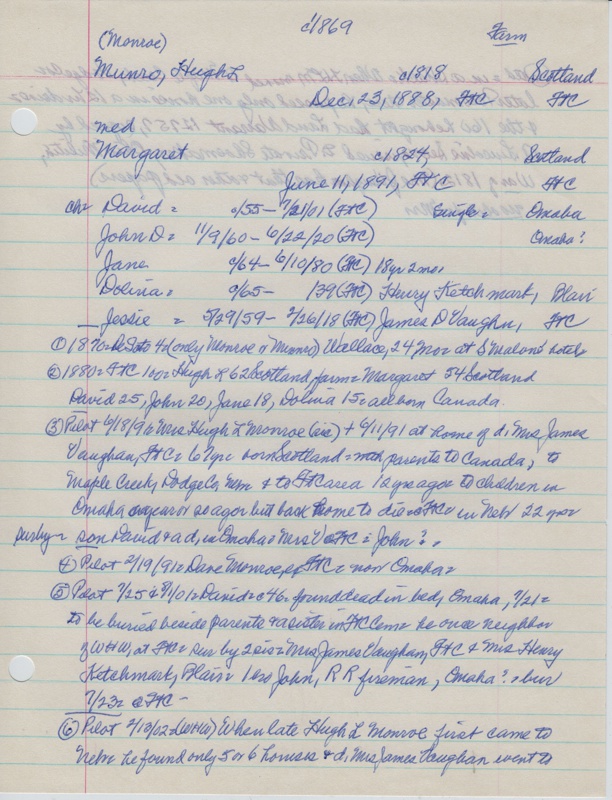 c1869
(Monroe) Farm
Munro, Hugh L c1818, Scotland
Dec. 23, 1888, FtC FtC
med
Margaret c1824, Scotland
June 11, 1891, FtC FtC
ch= David = c/55 - 7/21/01 (FtC) Single = Omaha
John D = 11/9/60 - 6/22/20 (FtC) Omaha?
Jane c/64 - 6/10/80 (FtC) 18yr 2mos
Dolina = c/65 - /39 (FtC) Henry Ketchmark, Blair
Jessie = 5/29/59 - 2/26/18 (FtC) James D Vaughn, FtC
① 1870 = (only Monroe or Munro) Wallace, 24 Mo = at S Malone's hotel
② 1880 = FtC 100 = Hugh L 62 Scotland, farm = Margaret 54 Scotland
David 25, John 20, Jane 18, Dolina 15 = all born Canada.
③ Pilot 6/18/91 = Mrs Hugh L Monroe (sic) + 6/11/91 at home of d, Mrs James
Vaughan, FtC = 67yr born Scotland = with parents to Canada, to
Maple Creek, Dodge Co, Nebr & to FtC area 12 yrs ago to children in
Omaha a year or so ago but back home to die @ FtC = in Nebr 22 yrs
surby = son David & a d, in Omaha = Mrs V @ FtC = John? =
④ Pilot 2/19/91 = Dave Monroe, of FtC = now Omaha =
⑤ Pilot 7/25 & 8/1/01 = David = c46 = found dead in bed, Omaha, 7/21 =
to be buried beside parents & a sister in FtC Cem = he once neighbor
of WHW, at FtC = sur by 2 sis = Mrs James Vaughan, FtC & Mrs Henry
Ketchmark, Blair = 1 bro John, R R fireman, Omaha? = bur
7/23 = @ FtC -
⑥ Pilot 2/13/02 = (WHW) When late Hugh L Monroe first came to
Nebr he found only 5 or 6 houses & d, Mrs James Vaughan went to